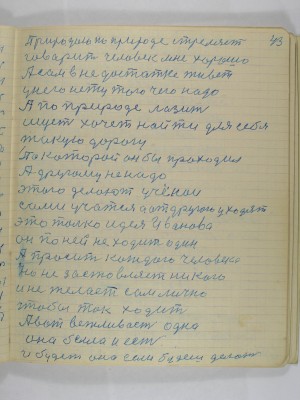 43
Природа на природе стремят
говорит человек мне хорошо
А сам в недостатке живет
у него нету того чего надо
А по природе лазит
ищет хочет найти для себя
такую дорогу
По которой он бы проходил
А другому ненадо
этого делают учёнои
сами учатся а от другого уходят
это только идея Иванова
он по ней не ходит один
А просит каждого человека
но не заставляет никого
и не желает сам лично
чтобы так ходит
А вот вежливаст одна
она была и есть
и будет она если будеш делать